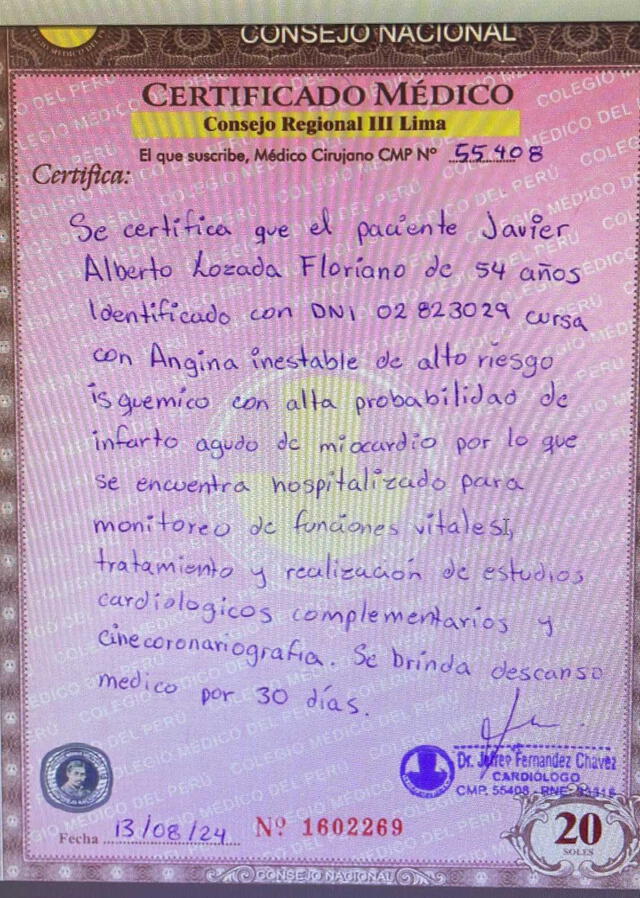 CONSEJO NACIONAL
CERTIFICADO MÉDICO
Consejo Regional III Lima
El que suscribe, Médico Cirujano CMP Nº 55408
Certifica:
Se certifica que el paciente Javier
Alberto Lozada Floriano de 54 años
Identificado con DNI 02823029 cursa
con Angina inestable de alto riesgo
isquemico con alta probabilidad de
infarto agudo de miocardio por lo que
se encuentra hospitalizado para
monitoreo de funciones vitales,
tratamiento y realización de estudios
cardiologicos complementarios y
cinecoronariografia. Se brinda descanso
medico por 30 días.
Dr. Fernandez Chavez
CARDIÓLOGO
CMP. 55408 - RNE.
Fecha 13/08/24 Nº 1602269
20
SOLES
CONSEJO NACIONAL